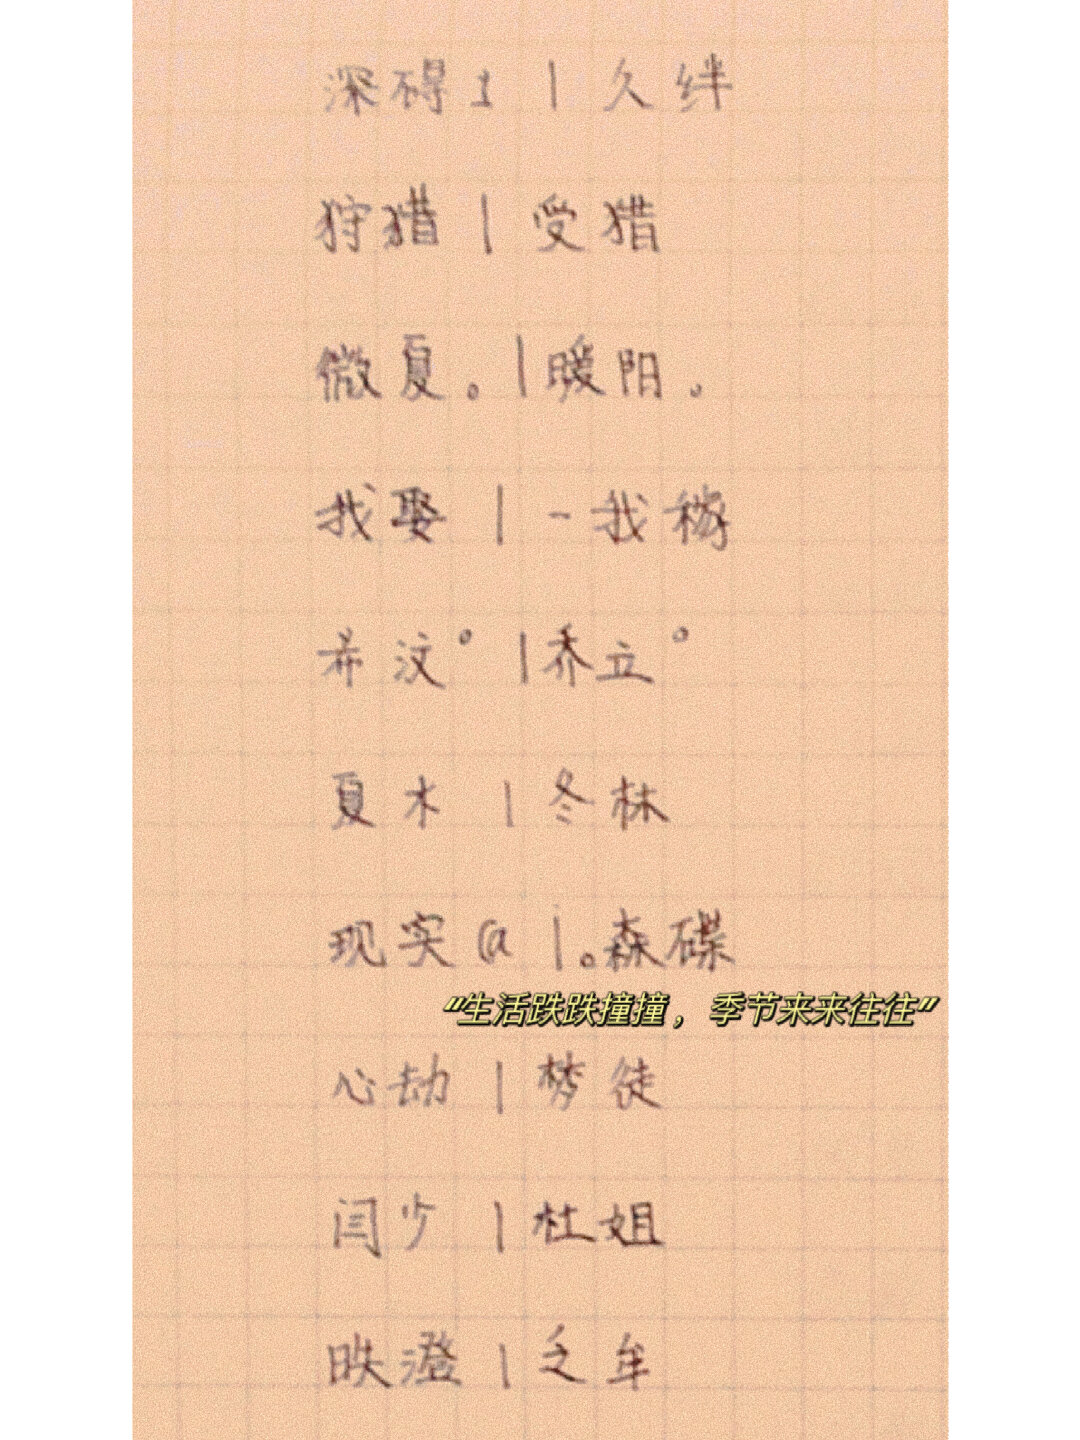 深碍 | 久绊
狩猎 | 受猎
微夏。| 暖阳。
我娶 | -我稼
希汶° | 乔立°
夏木 | 冬林
现实@ |。森碟
“生活跌跌撞撞，季节来来往往”
心劫 | 梦徒
闫少 | 杜姐
映澄 | 乏牟